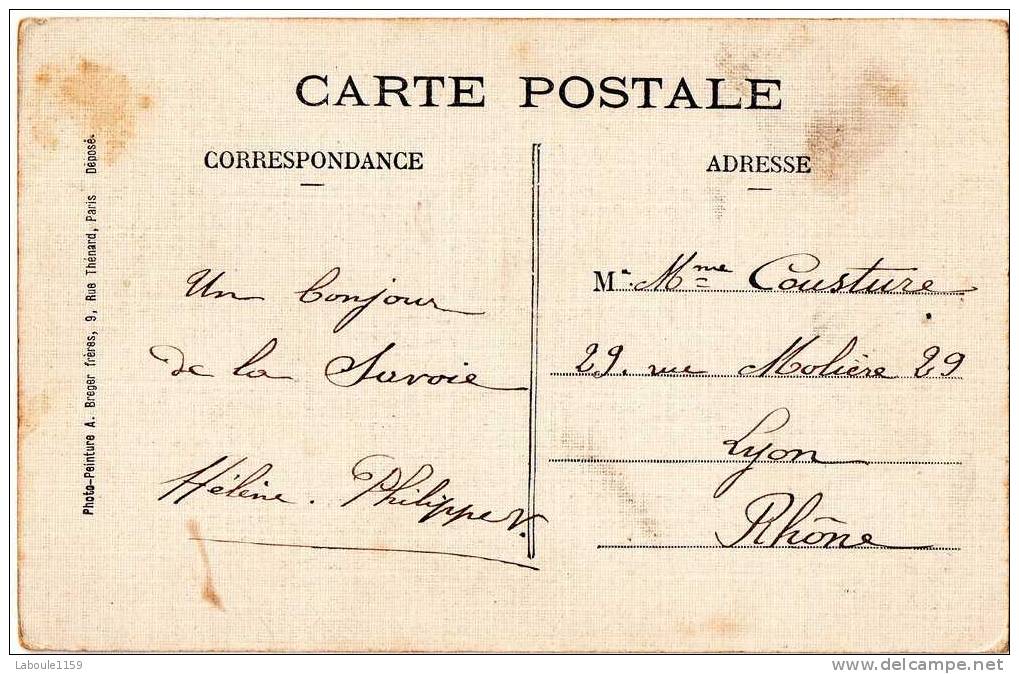 CARTE POSTALE
CORRESPONDANCE
ADRESSE
Photo-Peinture A. Breger frères, 9, Rue Thénard, Paris Déposé.
Un bonjour
de la Savoie
Hélène. Philippe V.
M. Mme Cousture
29. rue Molière 29
Lyon
Rhône
Laboule1159
www.delcampe.net